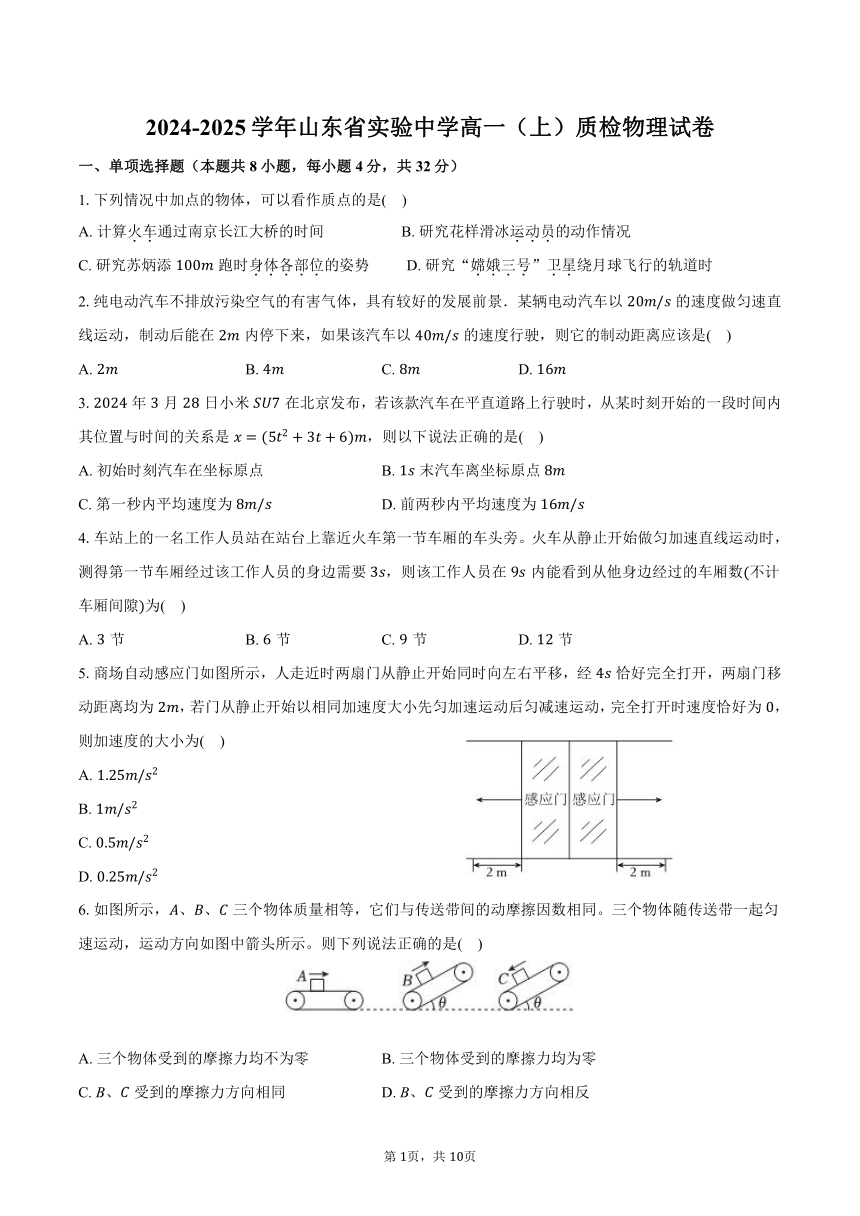 2024-2025学年山东省实验中学高一（上）质检物理试卷
一、单项选择题（本题共8小题，每小题4分，共32分）
1. 下列情况中加点的物体，可以看作质点的是( )
A. 计算火车通过南京长江大桥的时间 B. 研究花样滑冰运动员的动作情况
C. 研究苏炳添 100m 跑时身体各部位的姿势 D. 研究“嫦娥三号”卫星绕月球飞行的轨道时
2. 纯电动汽车不排放污染空气的有害气体，具有较好的发展前景．某辆电动汽车以 20m/s 的速度做匀速直
线运动，制动后能在 2m 内停下来，如果该汽车以 40m/s 的速度行驶，则它的制动距离应该是( )
A. 2m B. 4m C. 8m D. 16m
3. 2024 年 3 月 28 日小米 SU7 在北京发布，若该款汽车在平直道路上行驶时，从某时刻开始的一段时间内
其位置与时间的关系是 x = (5t² + 3t + 6)m，则以下说法正确的是( )
A. 初始时刻汽车在坐标原点 B. 1s 末汽车离坐标原点 8m
C. 第一秒内平均速度为 8m/s D. 前两秒内平均速度为 16m/s
4. 车站上的一名工作人员站在站台上靠近火车第一节车厢的车头旁。火车从静止开始做匀加速直线运动时，
测得第一节车厢经过该工作人员的身边需要 3s，则该工作人员在 9s 内能看到从他身边经过的车厢数(不计
车厢间隙)为( )
A. 3 节 B. 6 节 C. 9 节 D. 12 节
5. 商场自动感应门如图所示，人走近时两扇门从静止开始同时向左右平移，经 4s 恰好完全打开，两扇门移
动距离均为 2m，若门从静止开始以相同加速度大小先匀加速运动后匀减速运动，完全打开时速度恰好为 0，
则加速度的大小为( )
A. 1.25m/s²
B. 1m/s²
C. 0.5m/s²
D. 0.25m/s²
感应门 感应门
2 m 2 m
6. 如图所示，A、B、C 三个物体质量相等，它们与传送带间的动摩擦因数相同。三个物体随传送带一起匀
速运动，运动方向如图中箭头所示。则下列说法正确的是( )
A B θ C θ
A. 三个物体受到的摩擦力均不为零 B. 三个物体受到的摩擦力均为零
C. B、C 受到的摩擦力方向相同 D. B、C 受到的摩擦力方向相反
第 1页，共 10页